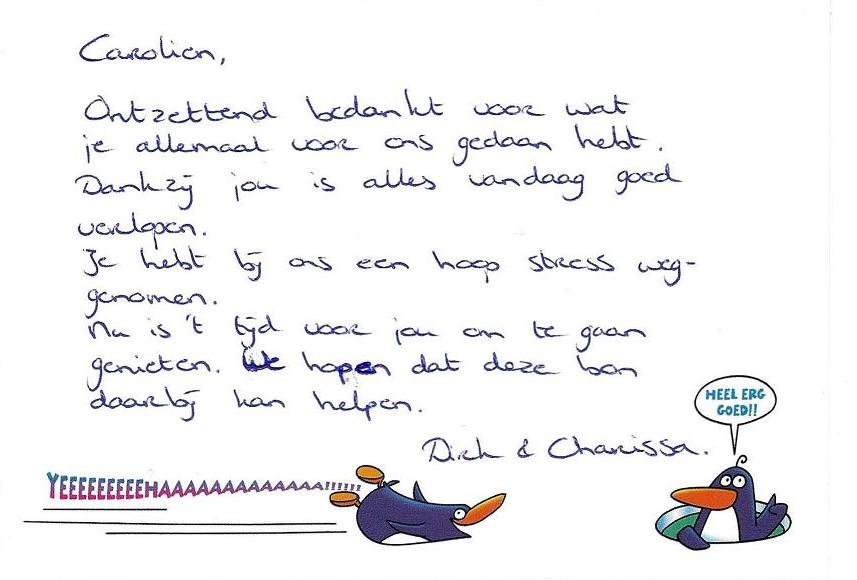 Carolien,
Ontzettend bedankt voor wat
je allemaal voor ons gedaan hebt.
Dankzij jou is alles vandaag goed
verlopen.
Je hebt bij ons een hoop stress weg-
genomen.
Nu is 't tijd voor jou om te gaan
genieten. We hopen dat deze bon
daarbij kan helpen.
Dirk & Charissa.
HEEL ERG
GOED!!
YEEEEEEEEEEHAAAAAAAAAAAAAA!!!!!!